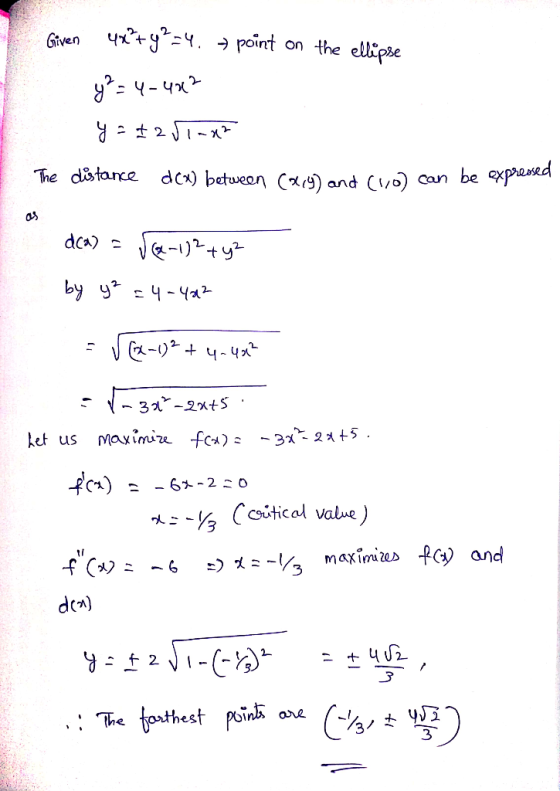 Given 4x²+y²=4. → point on the ellipse
y² = 4-4x²
y = ±2√(1-x²)
The distance d(x) between (x,y) and (1,0) can be expressed
as
d(x) = √((x-1)²+y²)
by y² = 4-4x²
= √((x-1)² + 4-4x²)
= √(-3x²-2x+5) .
Let us maximize f(x) = -3x²-2x+5 .
f'(x) = -6x-2=0
x=-1/3 (critical value)
f''(x) = -6 ⇒ x=-1/3 maximizes f(x) and
d(x)
y = ±2√(1-(-1/3)²) = ± 4√2/3 ,
∴ The farthest points are (-1/3, ± 4√2/3)